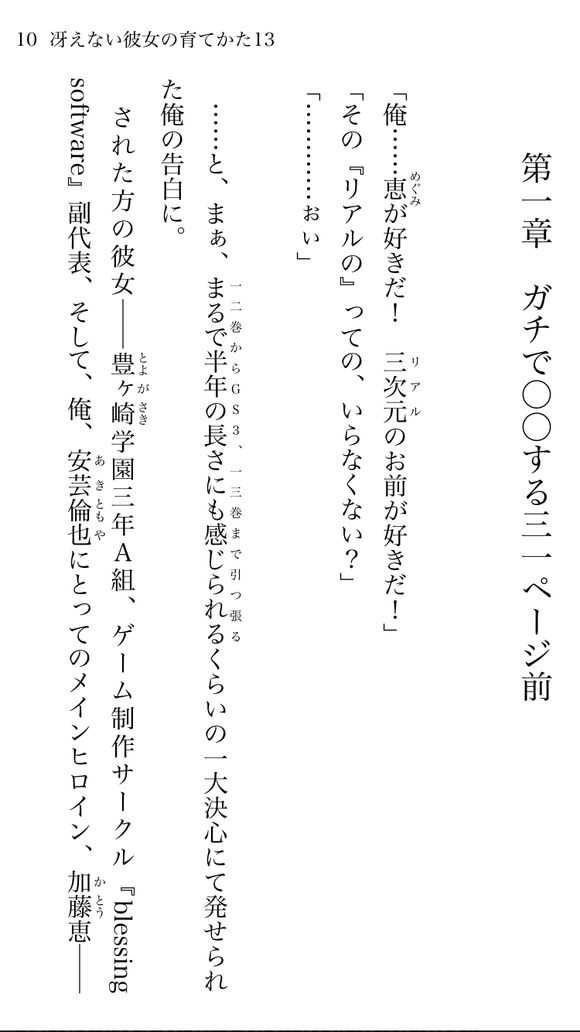 10 冴えない彼女の育てかた13
第一章　ガチで〇〇する三一ページ前
「俺……恵が好きだ！　三次元のお前が好きだ！」
めぐみ
リアル
「その『リアルの』っての、いらなくない？」
「…………おい」
……と、まぁ、まるで半年の長さにも感じられるくらいの一大決心にて発せられ
一二巻からＧＳ３、一三巻まで引っ張る
た俺の告白に。
された方の彼女――豊ヶ崎学園三年Ａ組、ゲーム制作サークル『blessing
とよがさき
software』副代表、そして、俺、安芸倫也にとってのメインヒロイン、加藤恵――
あきともや
かとう